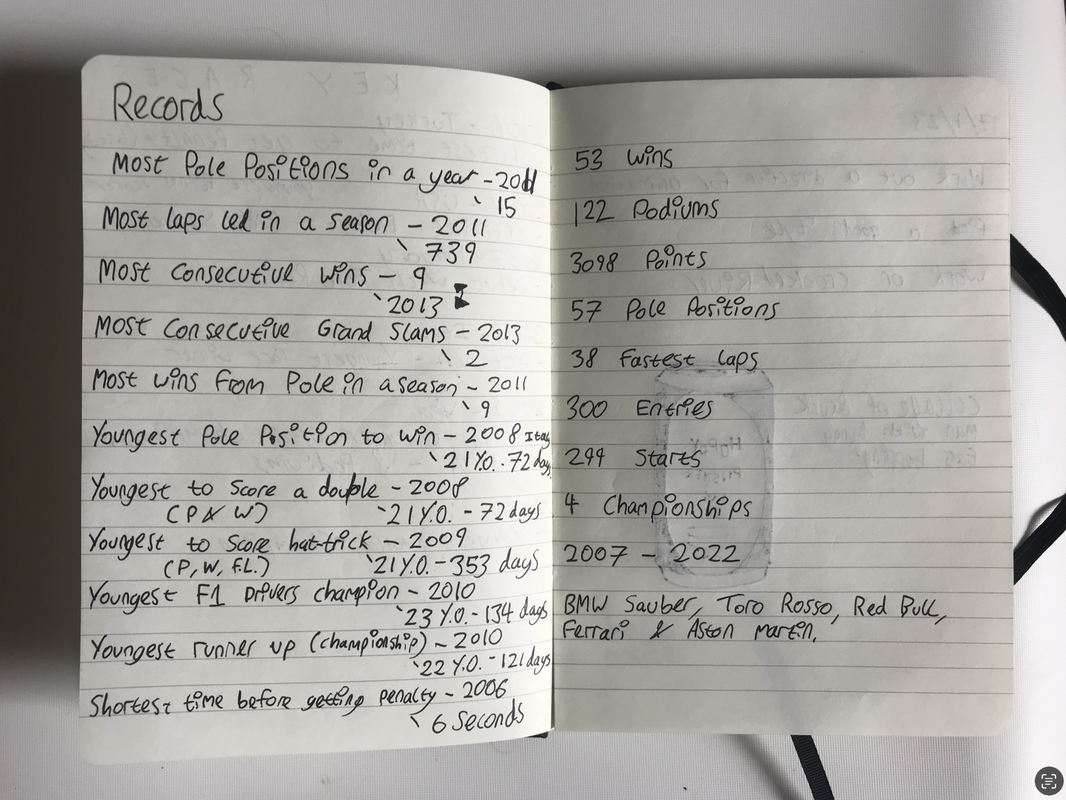 Records
Most Pole Positions in a year - 2011
15
Most laps led in a season - 2011
739
Most Consecutive wins - 9
2013
Most Consecutive Grand Slams - 2013
2
Most wins from Pole in a season - 2011
9
Youngest Pole Position to win - 2008 Italy
21 Y.O. - 72 days
Youngest to Score a double - 2008
(P & W) 21 Y.O. - 72 days
Youngest to Score hat-trick - 2009
(P, W, F.L.) 21 Y.O. - 353 days
Youngest F1 Drivers champion - 2010
23 Y.O. - 134 days
Youngest runner up (championship) - 2010
22 Y.O. - 121 days
Shortest time before getting penalty - 2006
6 seconds
53 wins
122 Podiums
3098 Points
57 Pole Positions
38 Fastest laps
300 Entries
299 Starts
4 Championships
2007 - 2022
BMW Sauber, Toro Rosso, Red Bull,
Ferrari & Aston Martin.